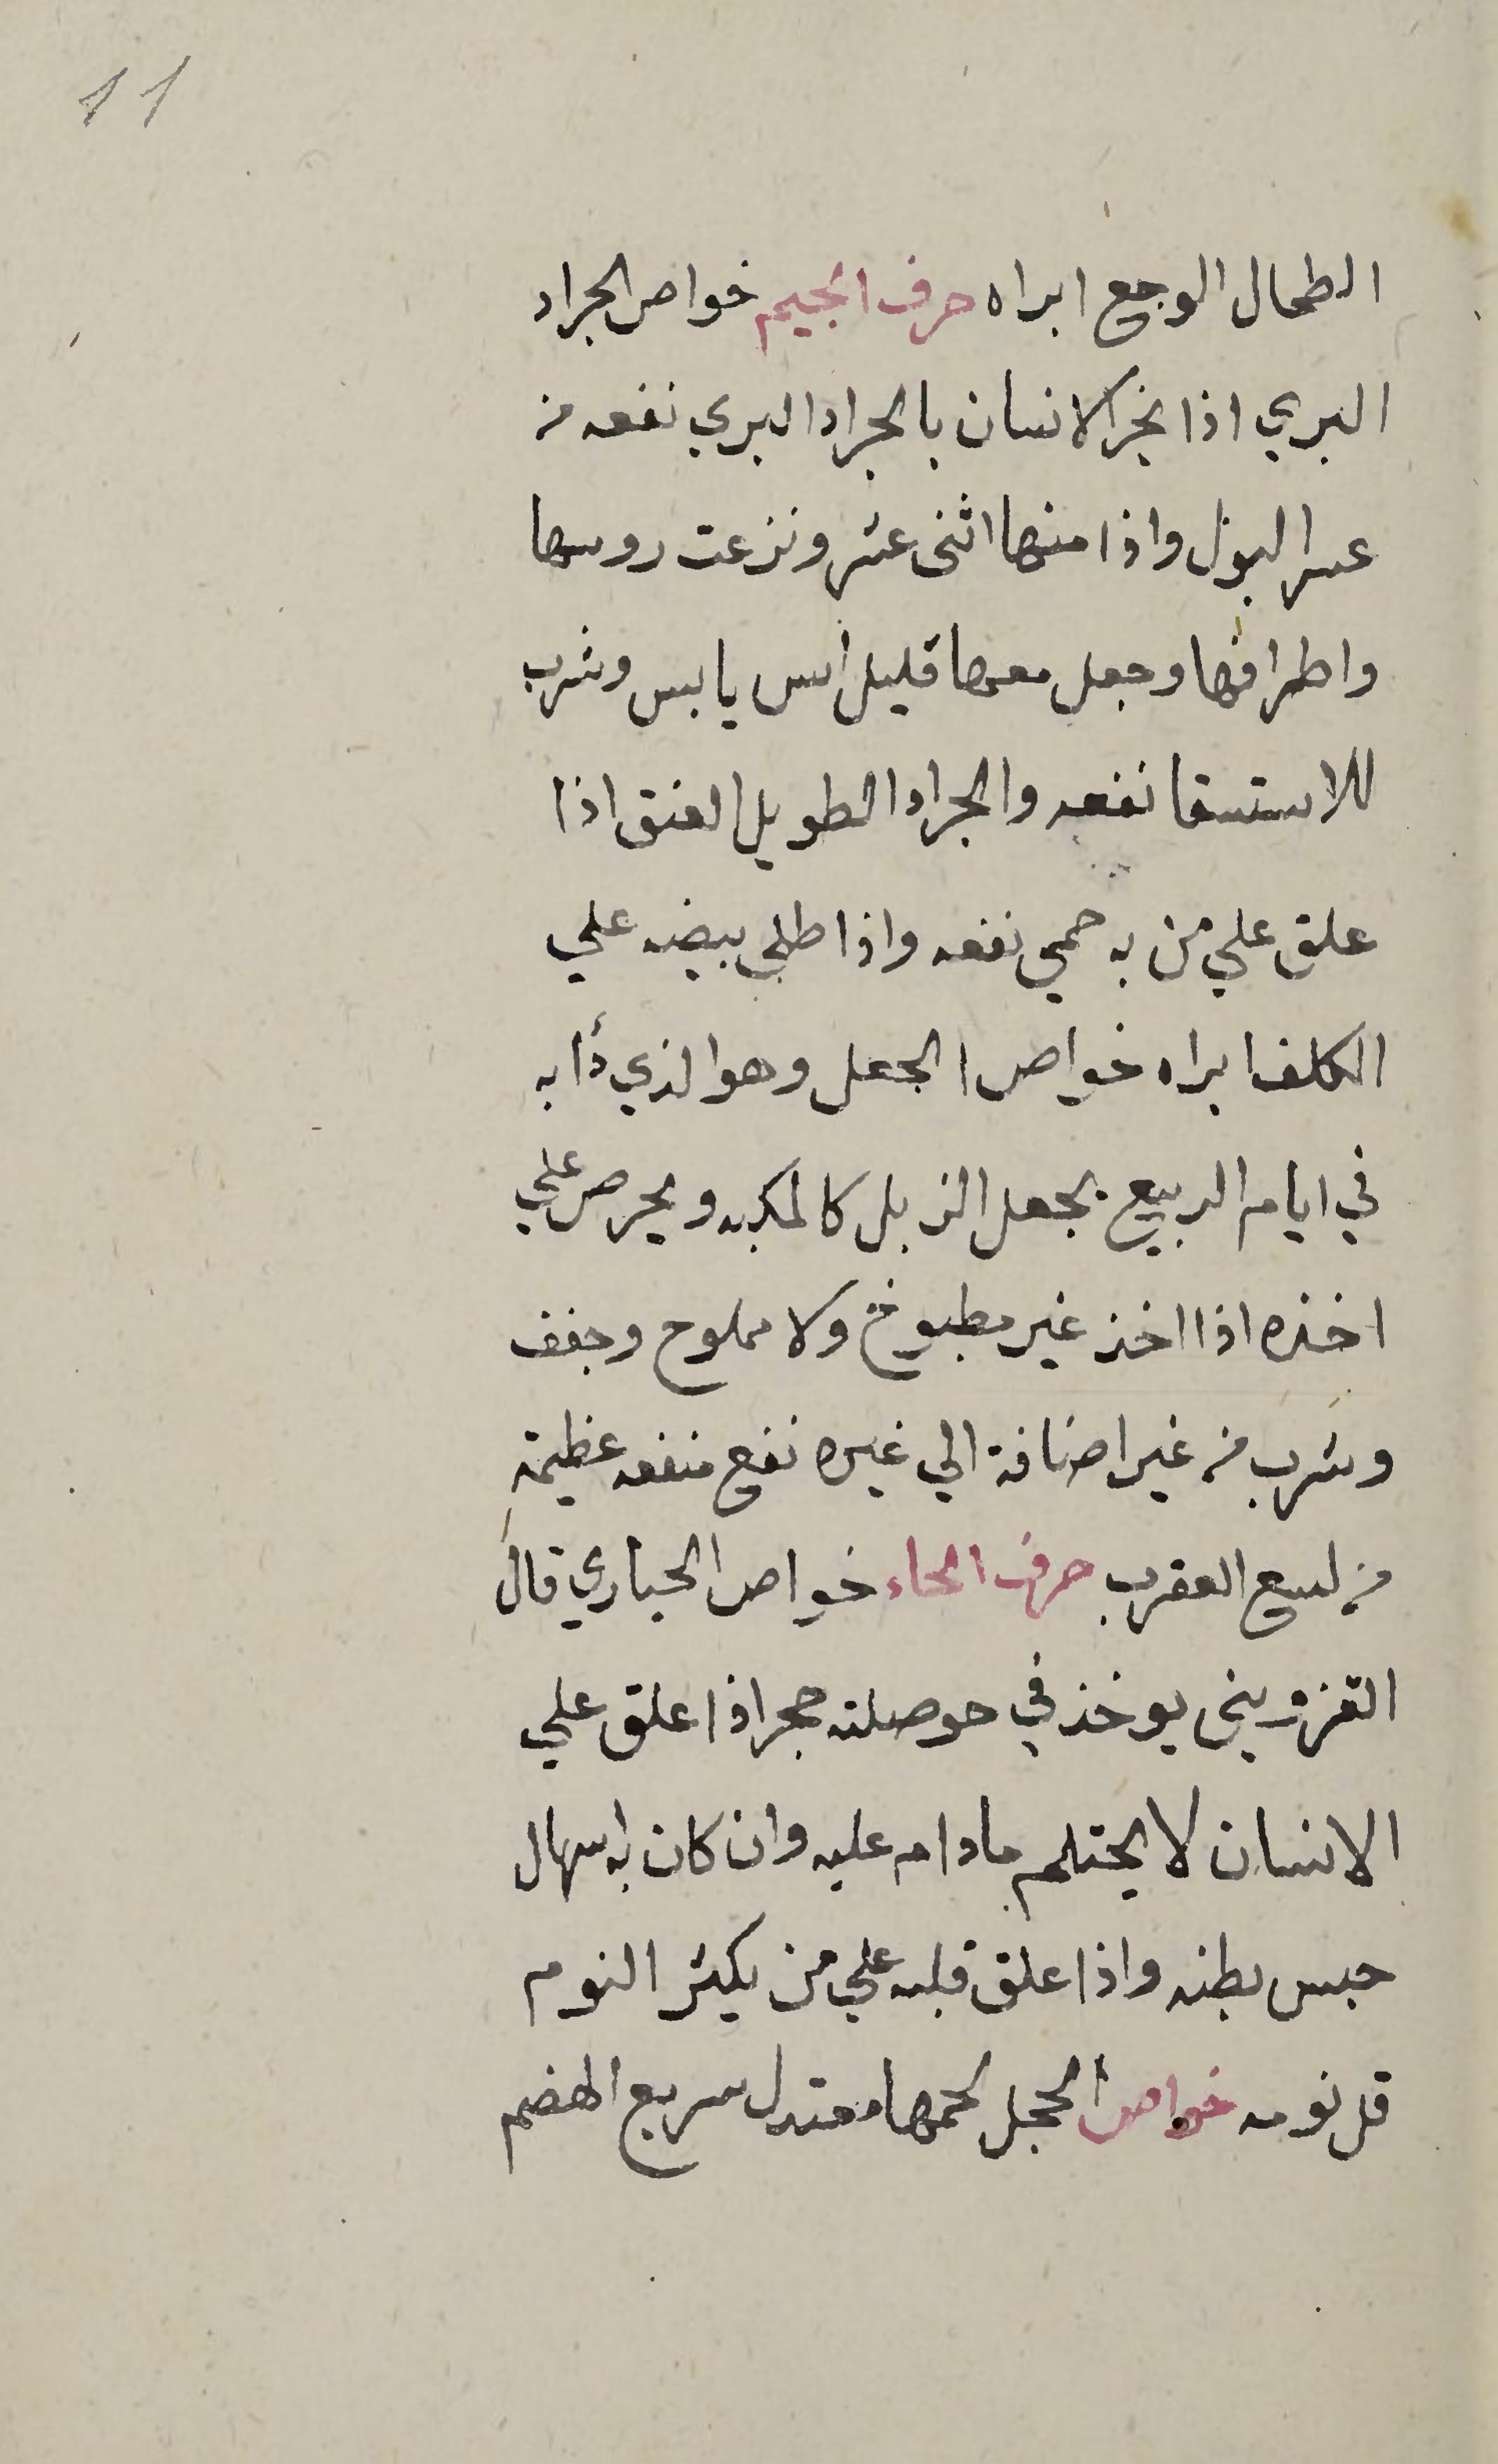 11
الطحال الوجع ابراه حرف الجيم خواص الجراد
البري اذا بخر الانسان بالجراد البري نفعه من
عسر البول واذا منها اثنى عشر ونزعت روسها
واطرافها وجعل معها قليل اس يابس وشرب
للاستسقا نفعه والجراد الطويل العنق اذا
علق علي من به حمي نفعه واذا طلي ببيضه علي
الكلف ابراه خواص الجعل وهو الذي دأبه
في ايام الربيع يجعل الزبل كالمكبه ويحرص علي
اخذه اذا اخذ غير مطبوخ ولا مملوح وجفف
وشرب من غير اضافة الي غيره نفع منفعه عظيمة
من لسع العقرب حرف الحاء خواص الحباري قال
القزويني يوخذ في حوصلته حجر اذا علق علي
الانسان لا يحتلم مادام عليه وان كان به اسهال
حبس بطنه واذا علق قلبه علي من يكثر النوم
قل نومه خواص الحجل لحمها معتدل سريع الهضم